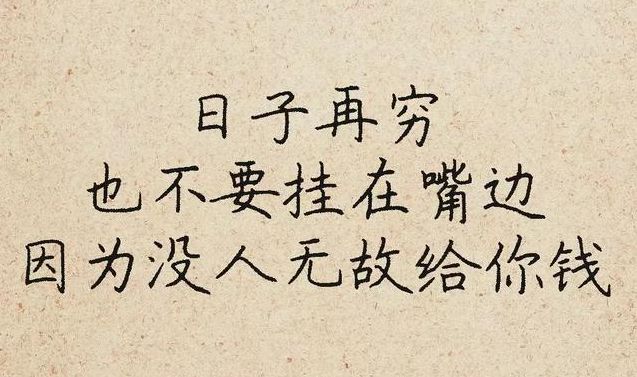 日子再穷
也不要挂在嘴边
因为没人无故给你钱